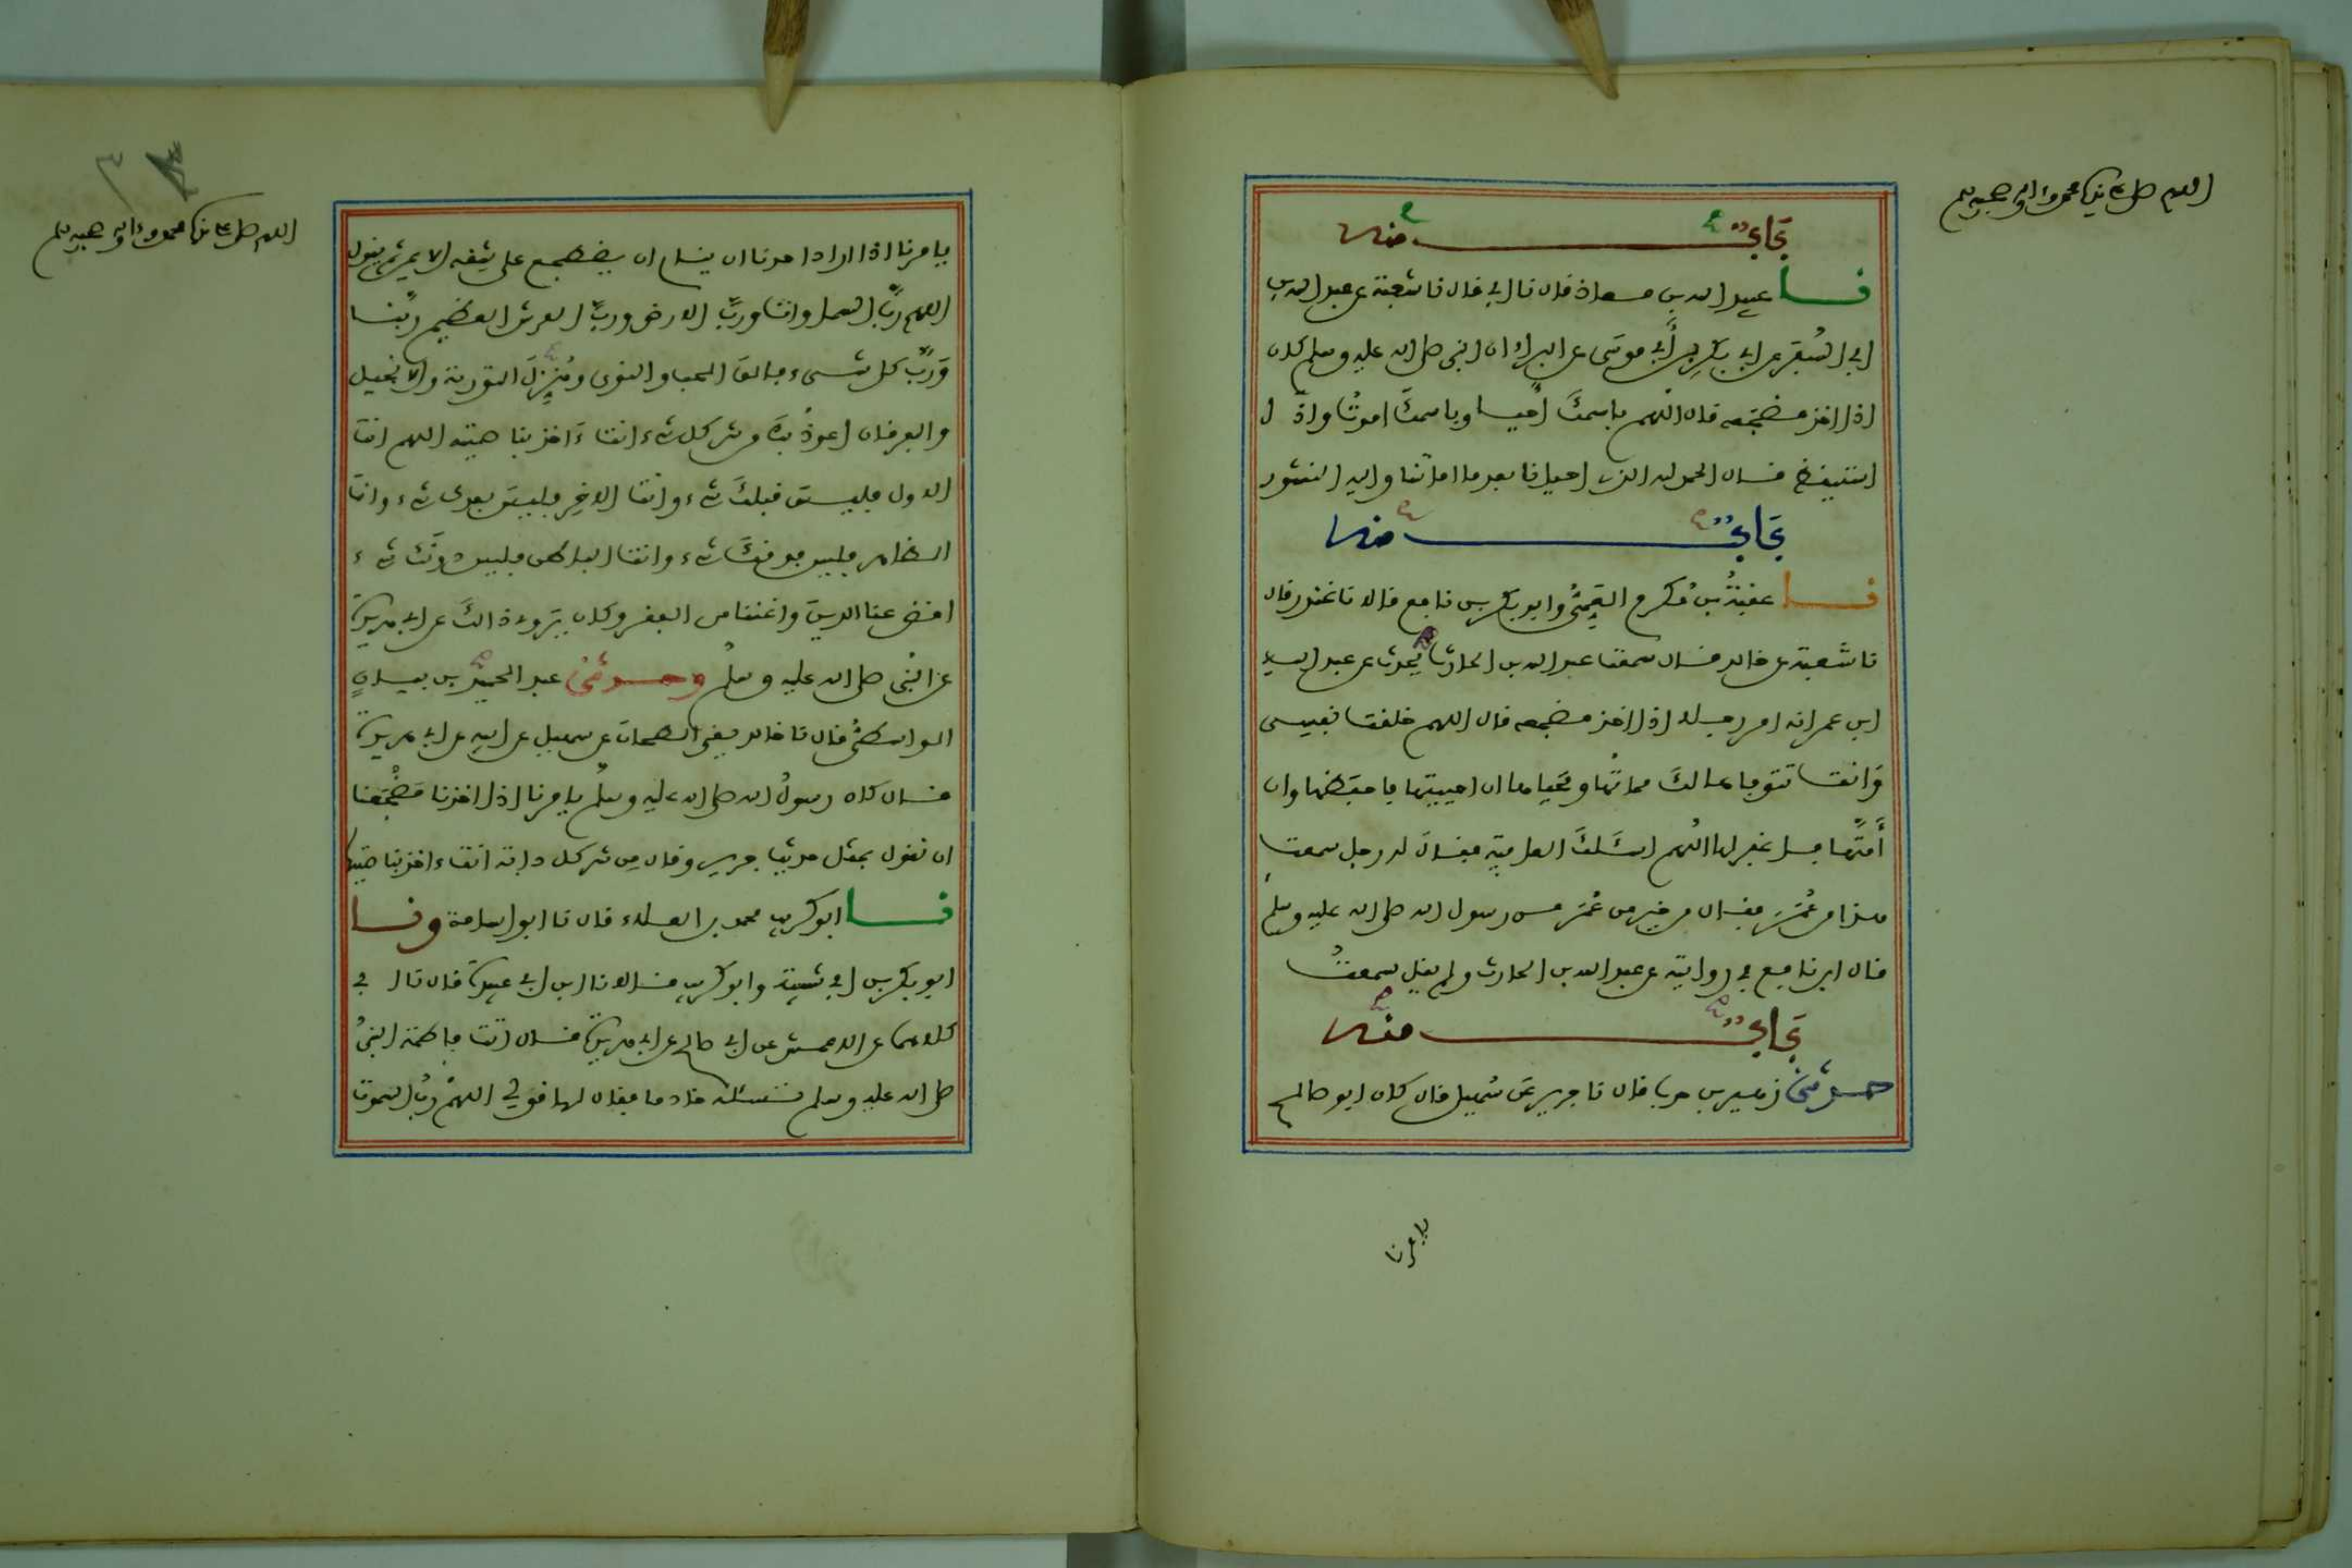 اللهم صل على نبينا محمد وءاله وصحبه وسلم
باب منه
نا عبيد الله بن معاذ قال نا ابي قال نا شعبة عن عبد الله بن
ابي السفر عن ابي بكر بن أبي موسى عن البراء ان النبي صلى الله عليه وسلم كان
اذا اخذ مضجعه قال اللهم باسمك أحيا وباسمك اموت واذا
استيقظ قال الحمد لله الذي احيانا بعد ما اماتنا واليه النشور
باب منه
نا عقبة بن مكرم العمي وابو بكر بن نافع قالا نا غندر قال
نا شعبة عن خالد قال سمعت عبد الله بن الحارث يحدث عن عبد الله
ابن عمر انه امر رجلا اذا اخذ مضجعه قال اللهم خلقت نفسي
وانت تتوفاها لك مماتها ومحياها ان احييتها فاحفظها وان
أمتها فاغفر لها اللهم اسئلك العافية فقال له رجل سمعت
هذا من عمر فقال من خير من عمر من رسول الله صلى الله عليه وسلم
قال ابن نافع في روايته عن عبد الله بن الحارث ولم يقل سمعت
باب منه
حدثني زهير بن حرب قال نا جرير عن سهيل قال كان ابو صالح
يامرنا
اللهم صل على نبينا محمد وءاله وصحبه وسلم
يامرنا اذا اراد احدنا ان ينام ان يضطجع على شقه الايمن ثم يقول
اللهم رب السماوات ورب الارض ورب العرش العظيم ربنا
ورب كل شيء فالق الحب والنوى ومنزل التورية والانجيل
والفرقان اعوذ بك من شر كل شيء انت ءاخذ بناصيته اللهم انت
الاول فليس قبلك شيء وانت الاخر فليس بعدك شيء وانت
الظاهر فليس فوقك شيء وانت الباطن فليس دونك شيء
اقض عنا الدين واغننا من الفقر وكان يروي ذالك عن ابي هريرة
عن النبي صلى الله عليه وسلم وحدثني عبد الحميد بن بيان
الواسطي قال نا خالد يعني الطحان عن سهيل عن ابيه عن ابي هريرة
قال كان رسول الله صلى الله عليه وسلم يامرنا اذا اخذنا مضجعنا
ان نقول بمثل حديث جرير وقال من شر كل دابة انت ءاخذ بناصيتها
نا ابو كريب محمد بن العلاء قال نا ابو اسامة ونا
ابو بكر بن ابي شيبة وابو كريب قالا نا ابن ابي عبيدة قال نا ابي
كلاهما عن الاعمش عن ابي صالح عن ابي هريرة قال اتت فاطمة النبي
صلى الله عليه وسلم تسئله خادما فقال لها قولي اللهم رب السموت